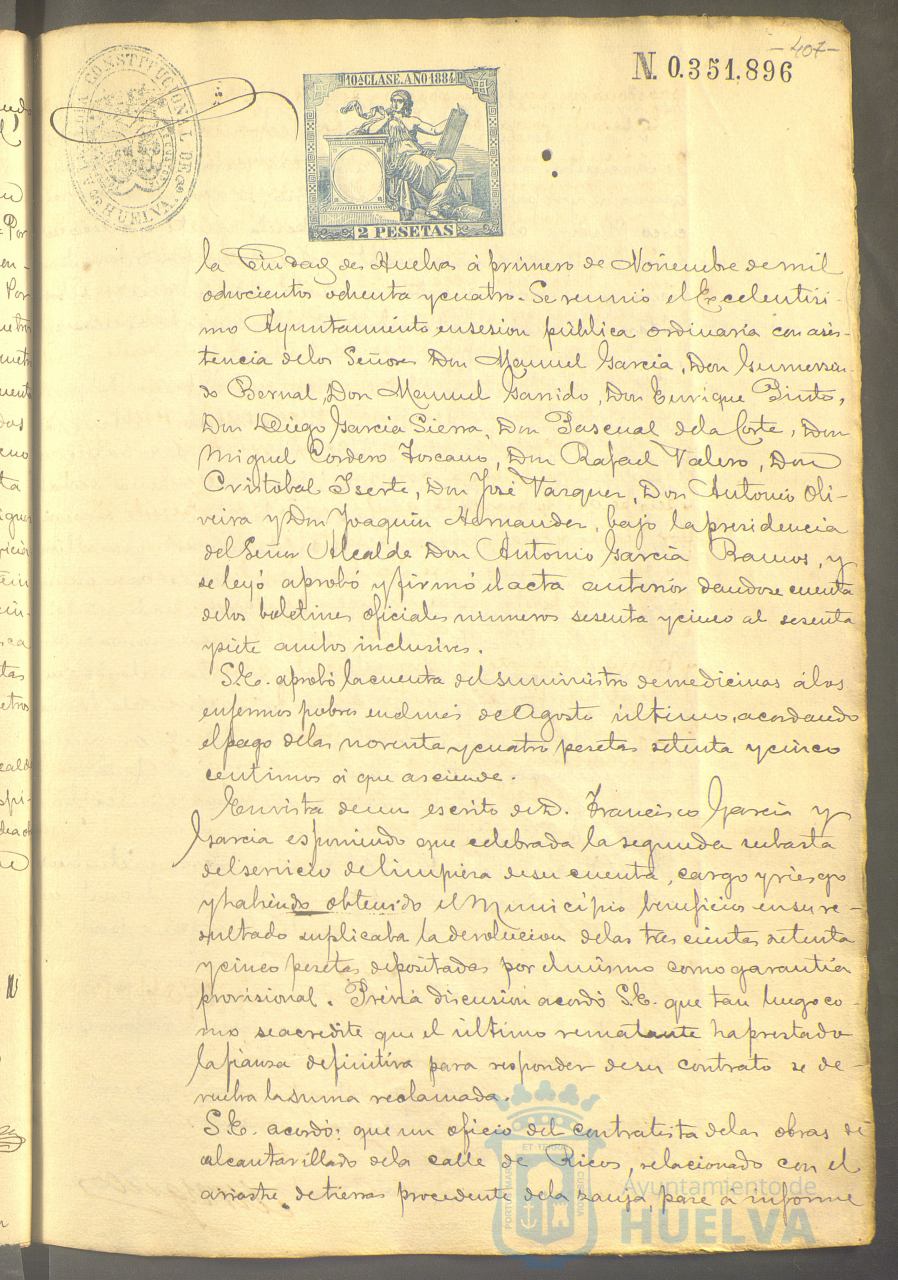 - 407 -
N. 0.351.896
ALCALDIA CONSTITUCIONAL DE HUELVA
10ª CLASE. AÑO 1884
2 PESETAS
la Ciudad de Huelva á primero de Noviembre de mil
ochocientos ochenta y cuatro. Se reunió el Excelentisi-
mo Ayuntamiento en sesion pública ordinaria con asis-
tencia de los Señores Don Manuel Garcia, Don Gumersin-
do Bernal, Don Manuel Garrido, Don Enrique Pinto,
Don Diego Garcia Sierra, Don Pascual de la Corte, Don
Miguel Cordero Toscano, Don Rafael Valero, Don
Cristobal Iserte, Don José Vazquez, Don Antonio Oli-
veira y Don Joaquin Hernandez, bajo la presidencia
del Señor Alcalde Don Antonio Garcia Ramos, y
se leyó aprobó y firmó el acta anterior dandose cuenta
de los boletines oficiales numeros sesenta y cinco al sesenta
y siete ambos inclusives.
S.E. aprobó la cuenta del suministro de medicinas á los
enfermos pobres en el mes de Agosto último, acordando
el pago de las noventa y cuatro pesetas setenta y cinco
centimos á que asciende.
En vista de un escrito de D. Francisco Garcia y
Garcia esponiendo que celebrada la segunda subasta
del servicio de limpieza de su cuenta, cargo y riesgo
y habiendo obtenido el Municipio beneficios en su re-
sultado suplicaba la devolucion de las trescientas setenta
y cinco pesetas depositadas por el mismo como garantia
provisional. Prévia discusion acordó S.E. que tan luego co-
mo se acredite que el último rematante ha prestado
la fianza definitiva para responder de su contrato se de-
vuelva la suma reclamada.
S.E. acordó: que un oficio del contratista de las obras de
alcantarillado de la calle de Ricos, relacionado con el
arrastre de tierras procedente de la zanja, pase á informe
Ayuntamiento de
HUELVA